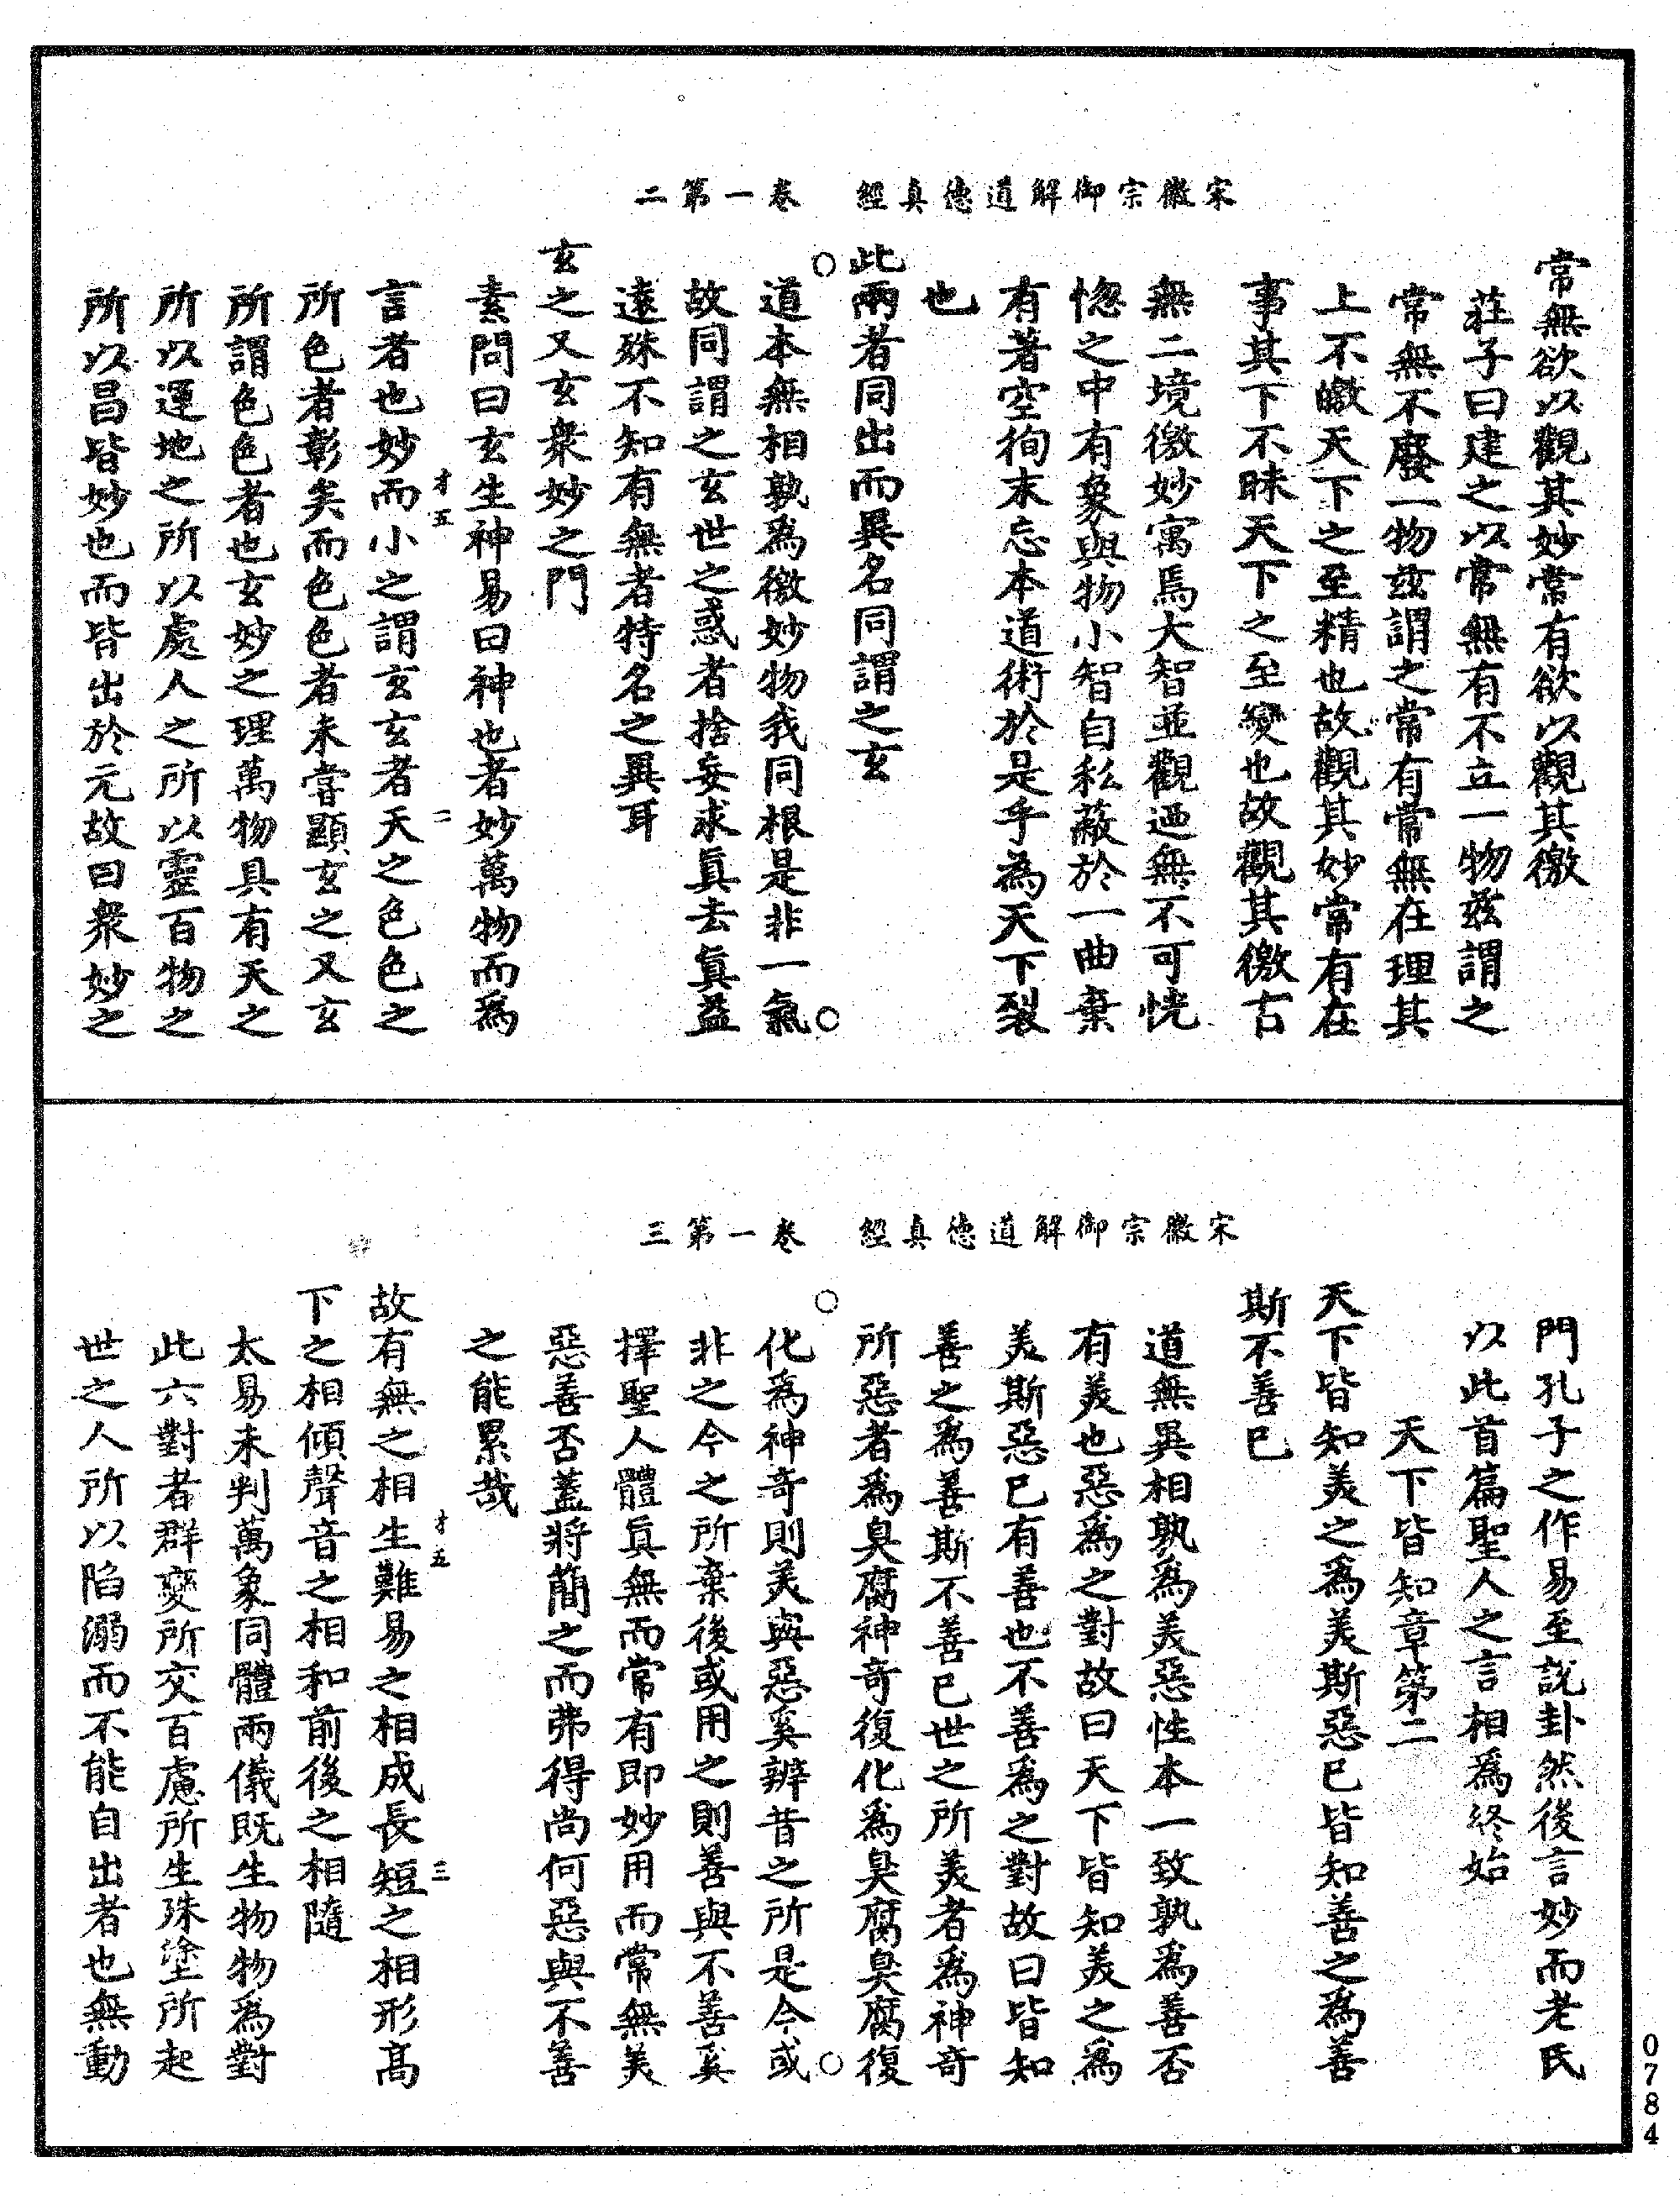 宋徽宗御解道德真經　卷一第二
常無欲以觀其妙常有欲以觀其徼
莊子曰建之以常無有不立一物茲謂之
常無不廢一物茲謂之常有常無在理其
上不皦天下之至精也故觀其妙常有在
事其下不昧天下之至變也故觀其徼古
無二境徼妙寓焉大智並觀迺無不可恍
惚之中有象與物小智自私蔽於一曲棄
有著空徇末忘本道術於是乎為天下裂
也
此兩者同出而異名同謂之玄
道本無相孰爲徼妙物我同根是非一氣
故同謂之玄世之惑者捨妄求眞去眞益
遠殊不知有無者特名之異耳
玄之又玄衆妙之門
素問曰玄生神易曰神也者妙萬物而爲
才五
二
言者也妙而小之謂玄玄者天之色色之
所色者彰矣而色色者未嘗顯玄之又玄
所謂色色者也玄妙之理萬物具有天之
所以運地之所以處人之所以靈百物之
所以昌皆妙也而皆出於元故曰衆妙之
宋徽宗御解道德真經　卷一第三
門孔子之作易至說卦然後言妙而老氏
以此首篇聖人之言相爲終始
天下皆知章第二
天下皆知美之爲美斯惡已皆知善之爲善
斯不善已
道無異相孰爲美惡性本一致孰爲善否
有美也惡爲之對故曰天下皆知美之爲
美斯惡已有善也不善爲之對故曰皆知
善之爲善斯不善已世之所美者爲神奇
所惡者爲臭腐神奇復化爲臭腐臭腐復
化爲神奇則美與惡奚辨昔之所是今或
非之今之所棄後或用之則善與不善奚
擇聖人體眞無而常有即妙用而常無美
惡善否蓋將簡之而弗得尚何惡與不善
之能累哉
才五
三
故有無之相生難易之相成長短之相形高
下之相傾聲音之相和前後之相隨
太易未判萬象同體兩儀既生物物爲對
此六對者群變所交百慮所生殊塗所起
世之人所以陷溺而不能自出者也無動
0784